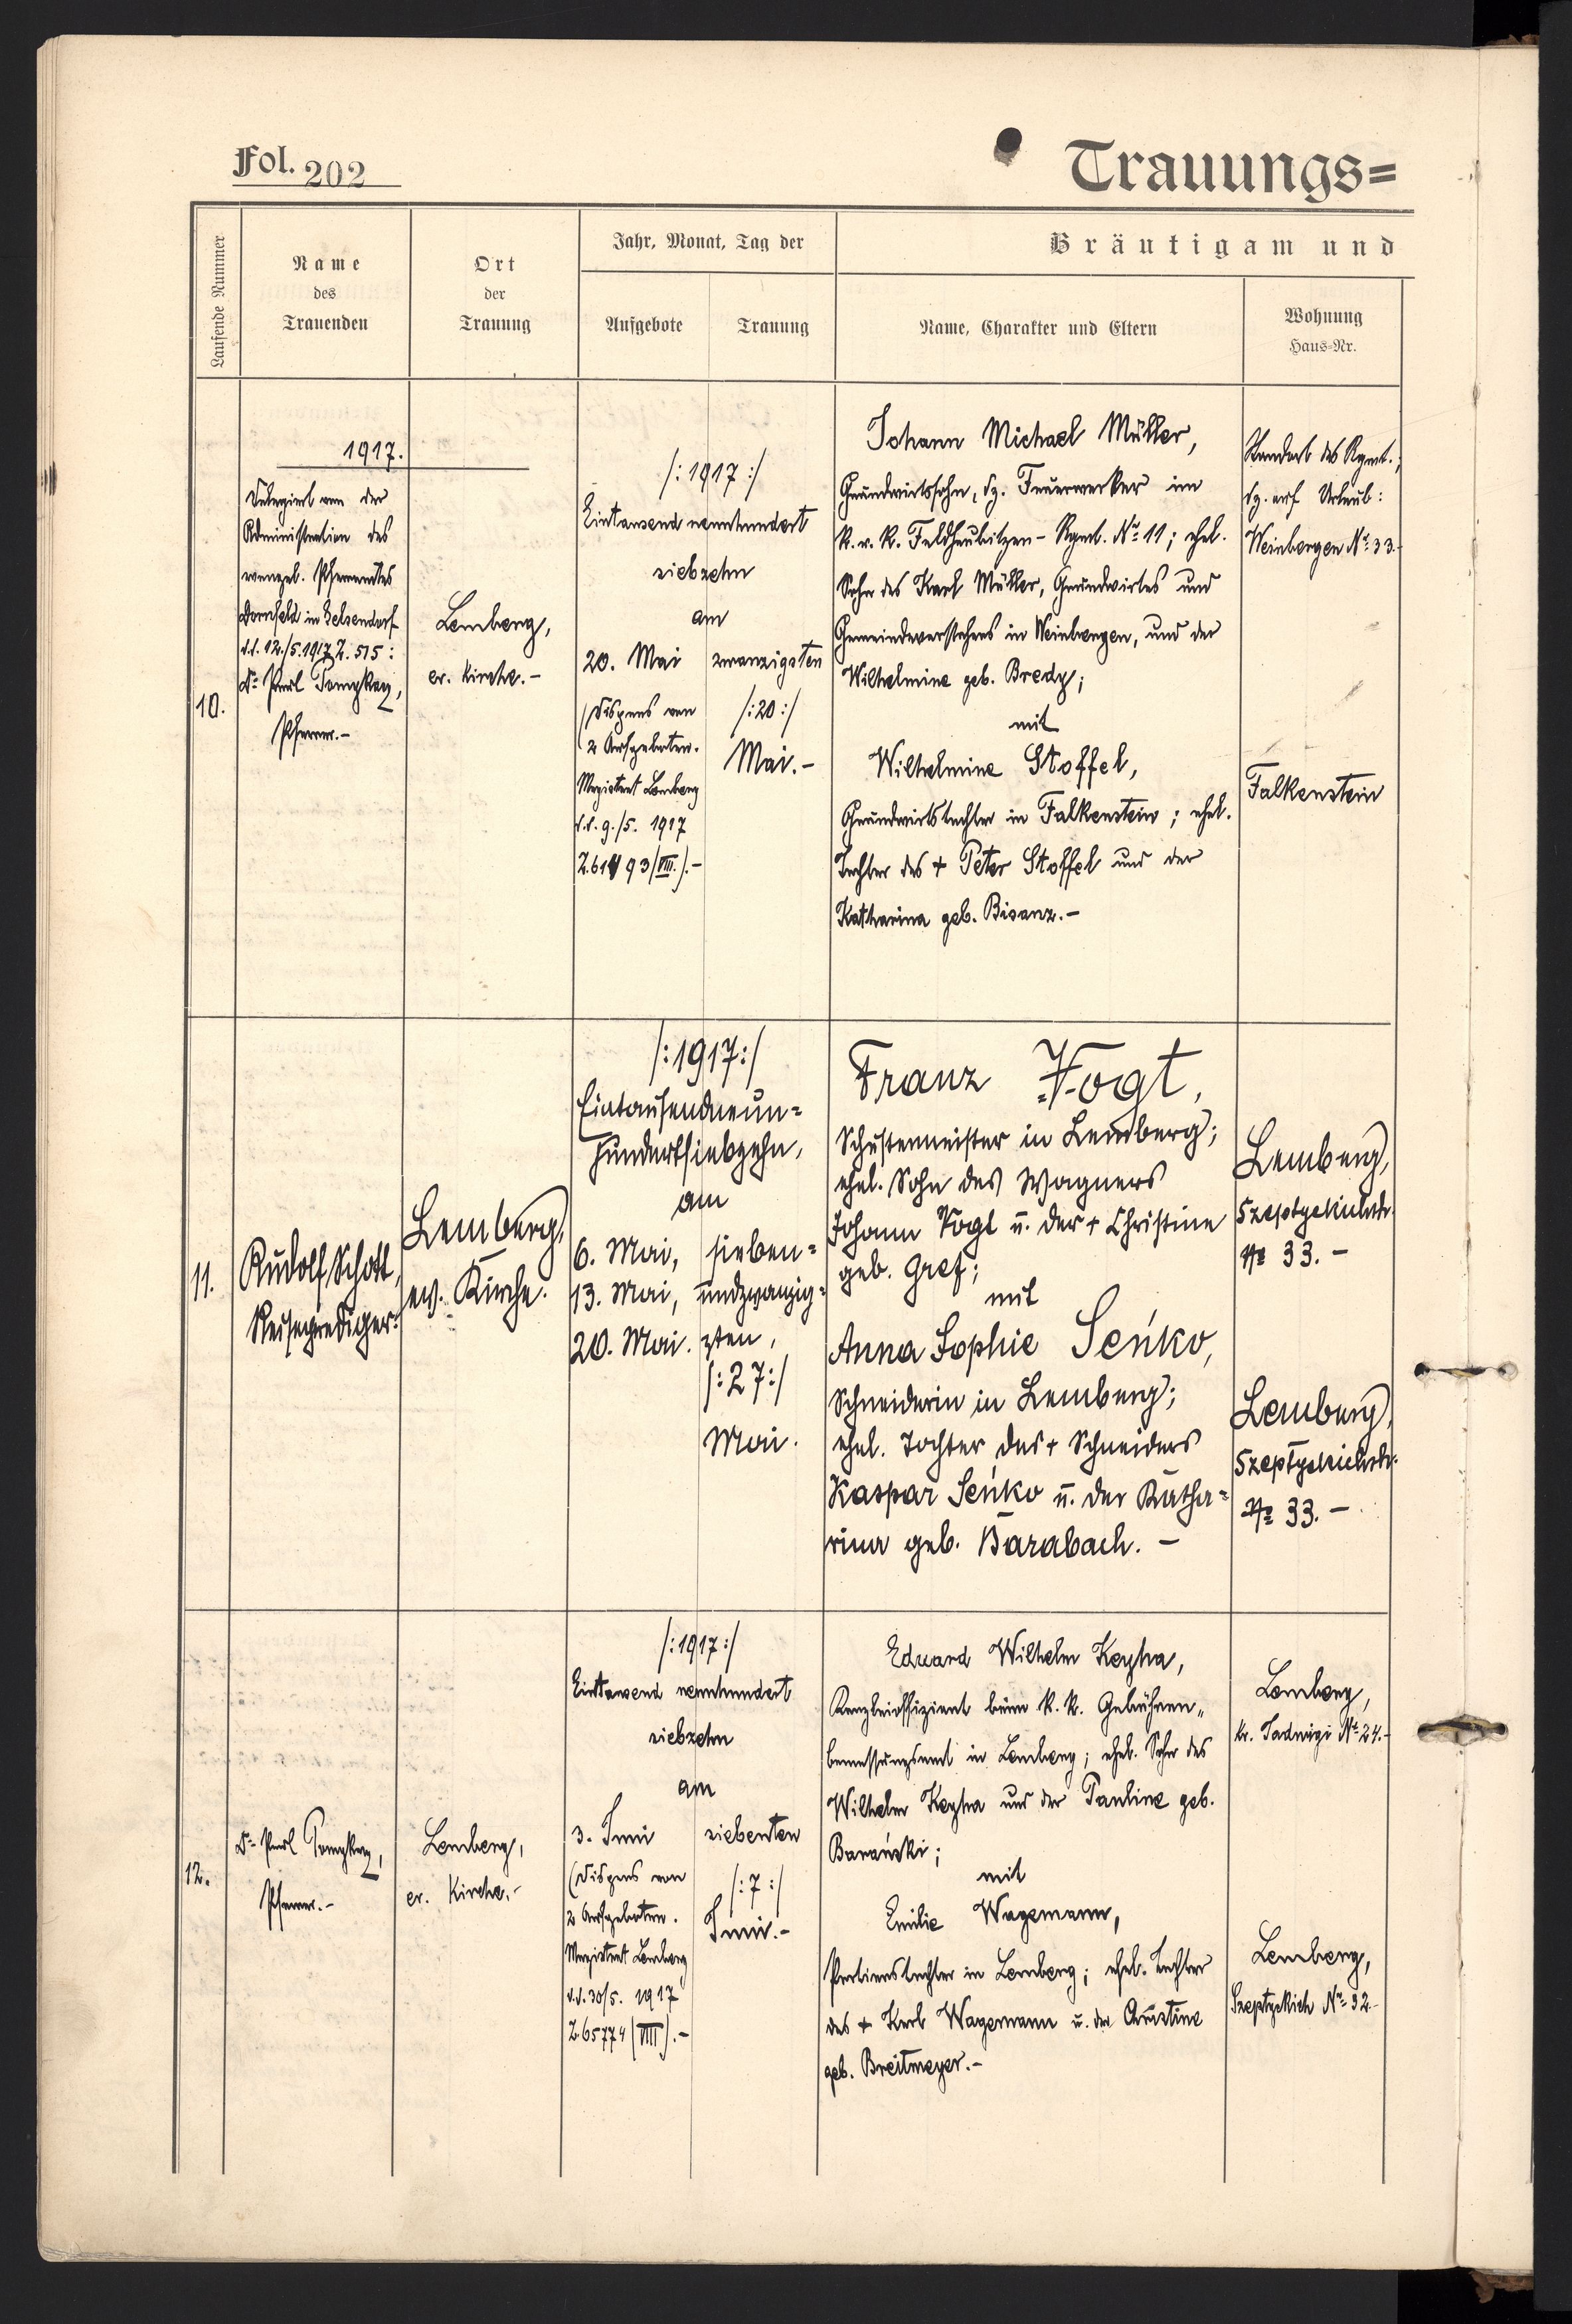 Fol. 202
Trauungs=
Laufende Nummer
Name
des
Trauenden
Ort
der
Trauung
Jahr, Monat, Tag der
Aufgebote
Trauung
Bräutigam und
Name, Charakter und Eltern
Wohnung
Haus=Nr.
10.
1917.
Delegiert von der
Administration des
evangel. Pfarramtes
Dornfeld in
d.d. 12./5.1917 Z. 515:
Dr. Paul
Pfarrer.-
Lemberg,
ev. Kirche.-
/:1917:/
Eintausend neunhundert
siebzehn
am
20. Mai
(Dispens von
2 Aufgeboten.
Magistrat Lemberg
d.d. 9./5. 1917
zwanzigsten
/:20:/
Mai.-
Johann Michael Müller,
Grundwirtssohn, dz. Feuerwerker im
k. u. k. Feldhaubitzen-Rgmt. No 11; ehel.
Sohn des Karl Müller, Grundwirtes und
Gemeindevorstehers in Weinbergen, und der
Wilhelmine geb. Bredy;
mit
Wilhelmine Stoffel,
Grundwirtstochter in Falkenstein; ehel.
Tochter des + Peter Stoffel und der
Katharina geb. Bisanz.-
Standort des Rgmt.;
dz. auf Urlaub:
Weinbergen No 33.-
Falkenstein
11.
Rudolf Schott,
Reiseprediger.
Lemberg,
ev. Kirche.
/:1917:/
Eintausendneun=
hundertsiebzehn,
am
6. Mai,
13. Mai,
20. Mai.
sieben=
undzwanzig=
sten,
/:27:/
Mai.
Franz Vogt,
Schustermeister in Lemberg;
ehel. Sohn des Wagners
Johann Vogt u. der + Christine
geb. Gref;
mit
Anna Sophie Seńko,
Schneiderin in Lemberg;
ehel. Tochter des + Schneiders
Kaspar Seńko u. der Katha=
rina geb. Barabach. -
Lemberg,
No 33. -
Lemberg,
No 33. -
12.
Dr. Paul
Pfarrer.-
Lemberg,
ev. Kirche.-
/:1917:/
Eintausend neunhundert
siebzehn
am
3. Juni
(Dispens von
2 Aufgeboten.
Magistrat Lemberg
d.d. 30/5. 1917
Z. 65774 (VIII).-
siebenten
/:7:/
Juni.-
Eduard Wilhelm Keyha,
Kanzleioffiziant beim k. k. Gebühren„
bemessungsamt in Lemberg; ehel. Sohn des
Wilhelm Keyha und der Pauline geb.
Barański;
mit
Emilie Wagemann,
in Lemberg; ehel. Tochter
des + Karl Wagemann u. der Christine
geb. Breitmeyer.-
Lemberg,
Jadwigi No 24.-
Lemberg,
Szeptyckich No 32.-